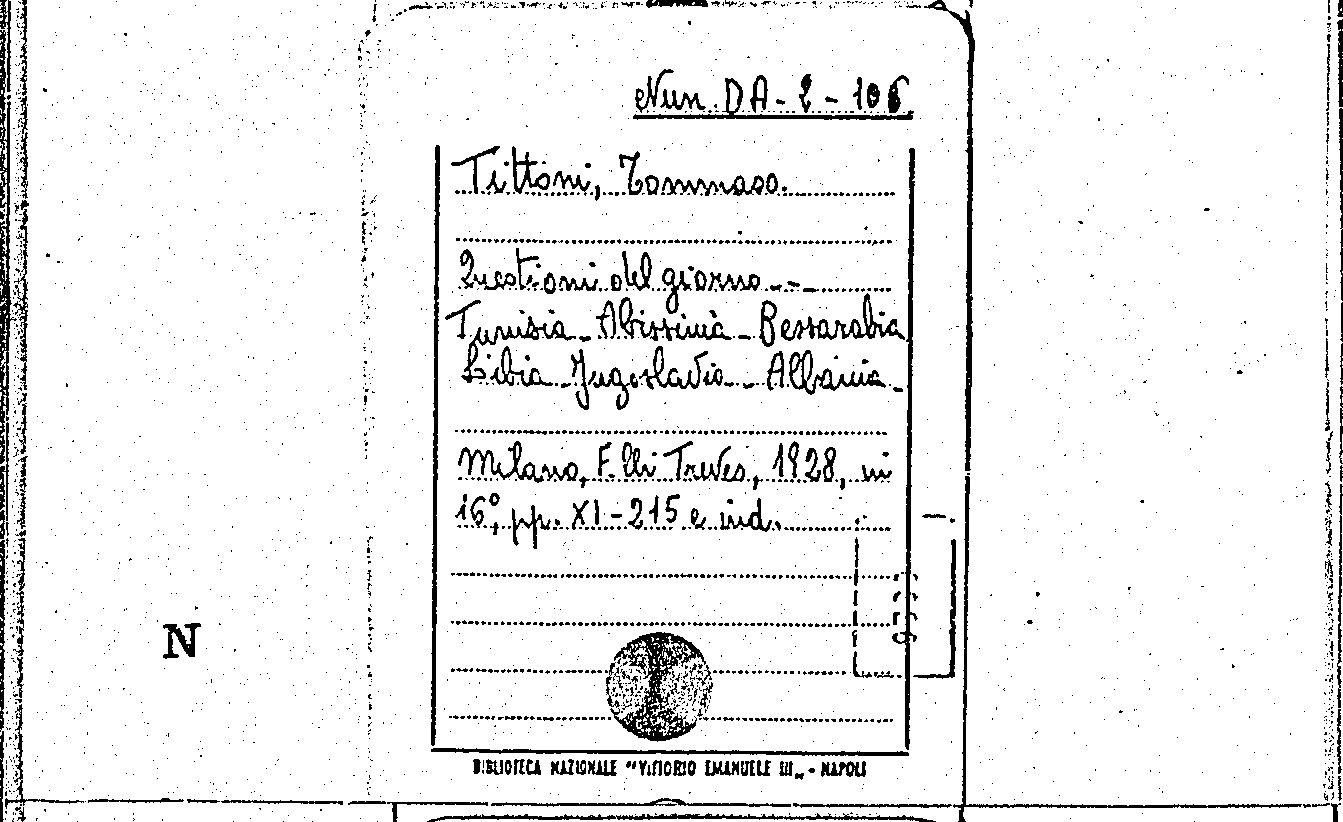 Nun DA-2-106
Tittoni, Tommaso.
Questioni del giorno.--
Tunisia - Abissinia - Bessarabia
Libia - Jugoslavia - Albania -
Milano, F.lli Treves, 1928, in
16°, pp. XI-215 e ind.
N
BIBLIOTECA NAZIONALE "VITTORIO EMANUELE III„ - NAPOLI